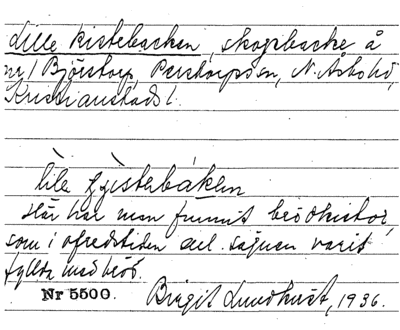 Lille kistebacken, skogsbacke å
nr 1 Björstorp, Perstorps sn, N. Åsbo hd,
Kristianstads l.
lìle çìstebákẹn
Här har man funnit brödkistor,
som i ofredstiden enl. sägnen varit
fyllda med bröd.
Nr 5500. Birgit Lundkvist, 1936.